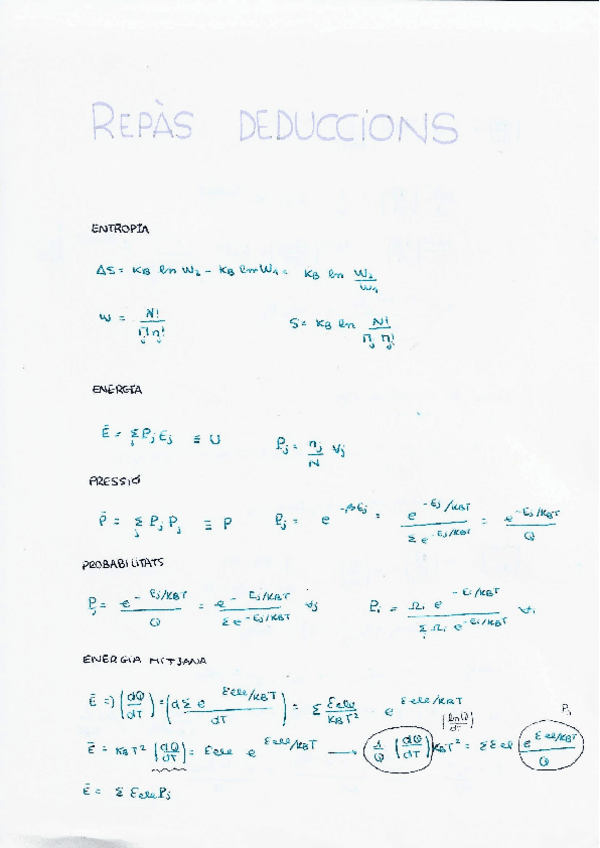 REPÀS DEDUCCIONS
ENTROPÍA
ΔS = KB ln W2 - KB ln W1 = KB ln W2/W1
W = N!/Πj nj!   S = KB ln N!/Πj nj!
ENERGÍA
Ē = Σj Pj Ej ≡ U   Pj = nj/N ∀j
PRESSIÓ
P̄ = Σj Pj Pj ≡ P   Pj = e^-βEj = e^-Ej/KBT / Σ e^-Ej/KBT = e^-Ej/KBT / Q
PROBABILITATS
Pj = e^-Ej/KBT / Q = e^-Ej/KBT / Σ e^-Ej/KBT ∀j   Pi = Ωi e^-Ei/KBT / Σi Ωi e^-Ei/KBT ∀i
ENERGIA MITJANA
Ē => (dQ/dT) = (d Σ e^Eele/KBT / dT) = Σ Eele/KBT² e^Eele/KBT
(lnQ/dT) Pj
Ē = KBT² (dQ/dT) = Eele e^Eele/KBT → 1/Q (dQ/dT) KBT² = Σ Eele e^Eele/KBT / Q
Ē = Σ Eele Pj